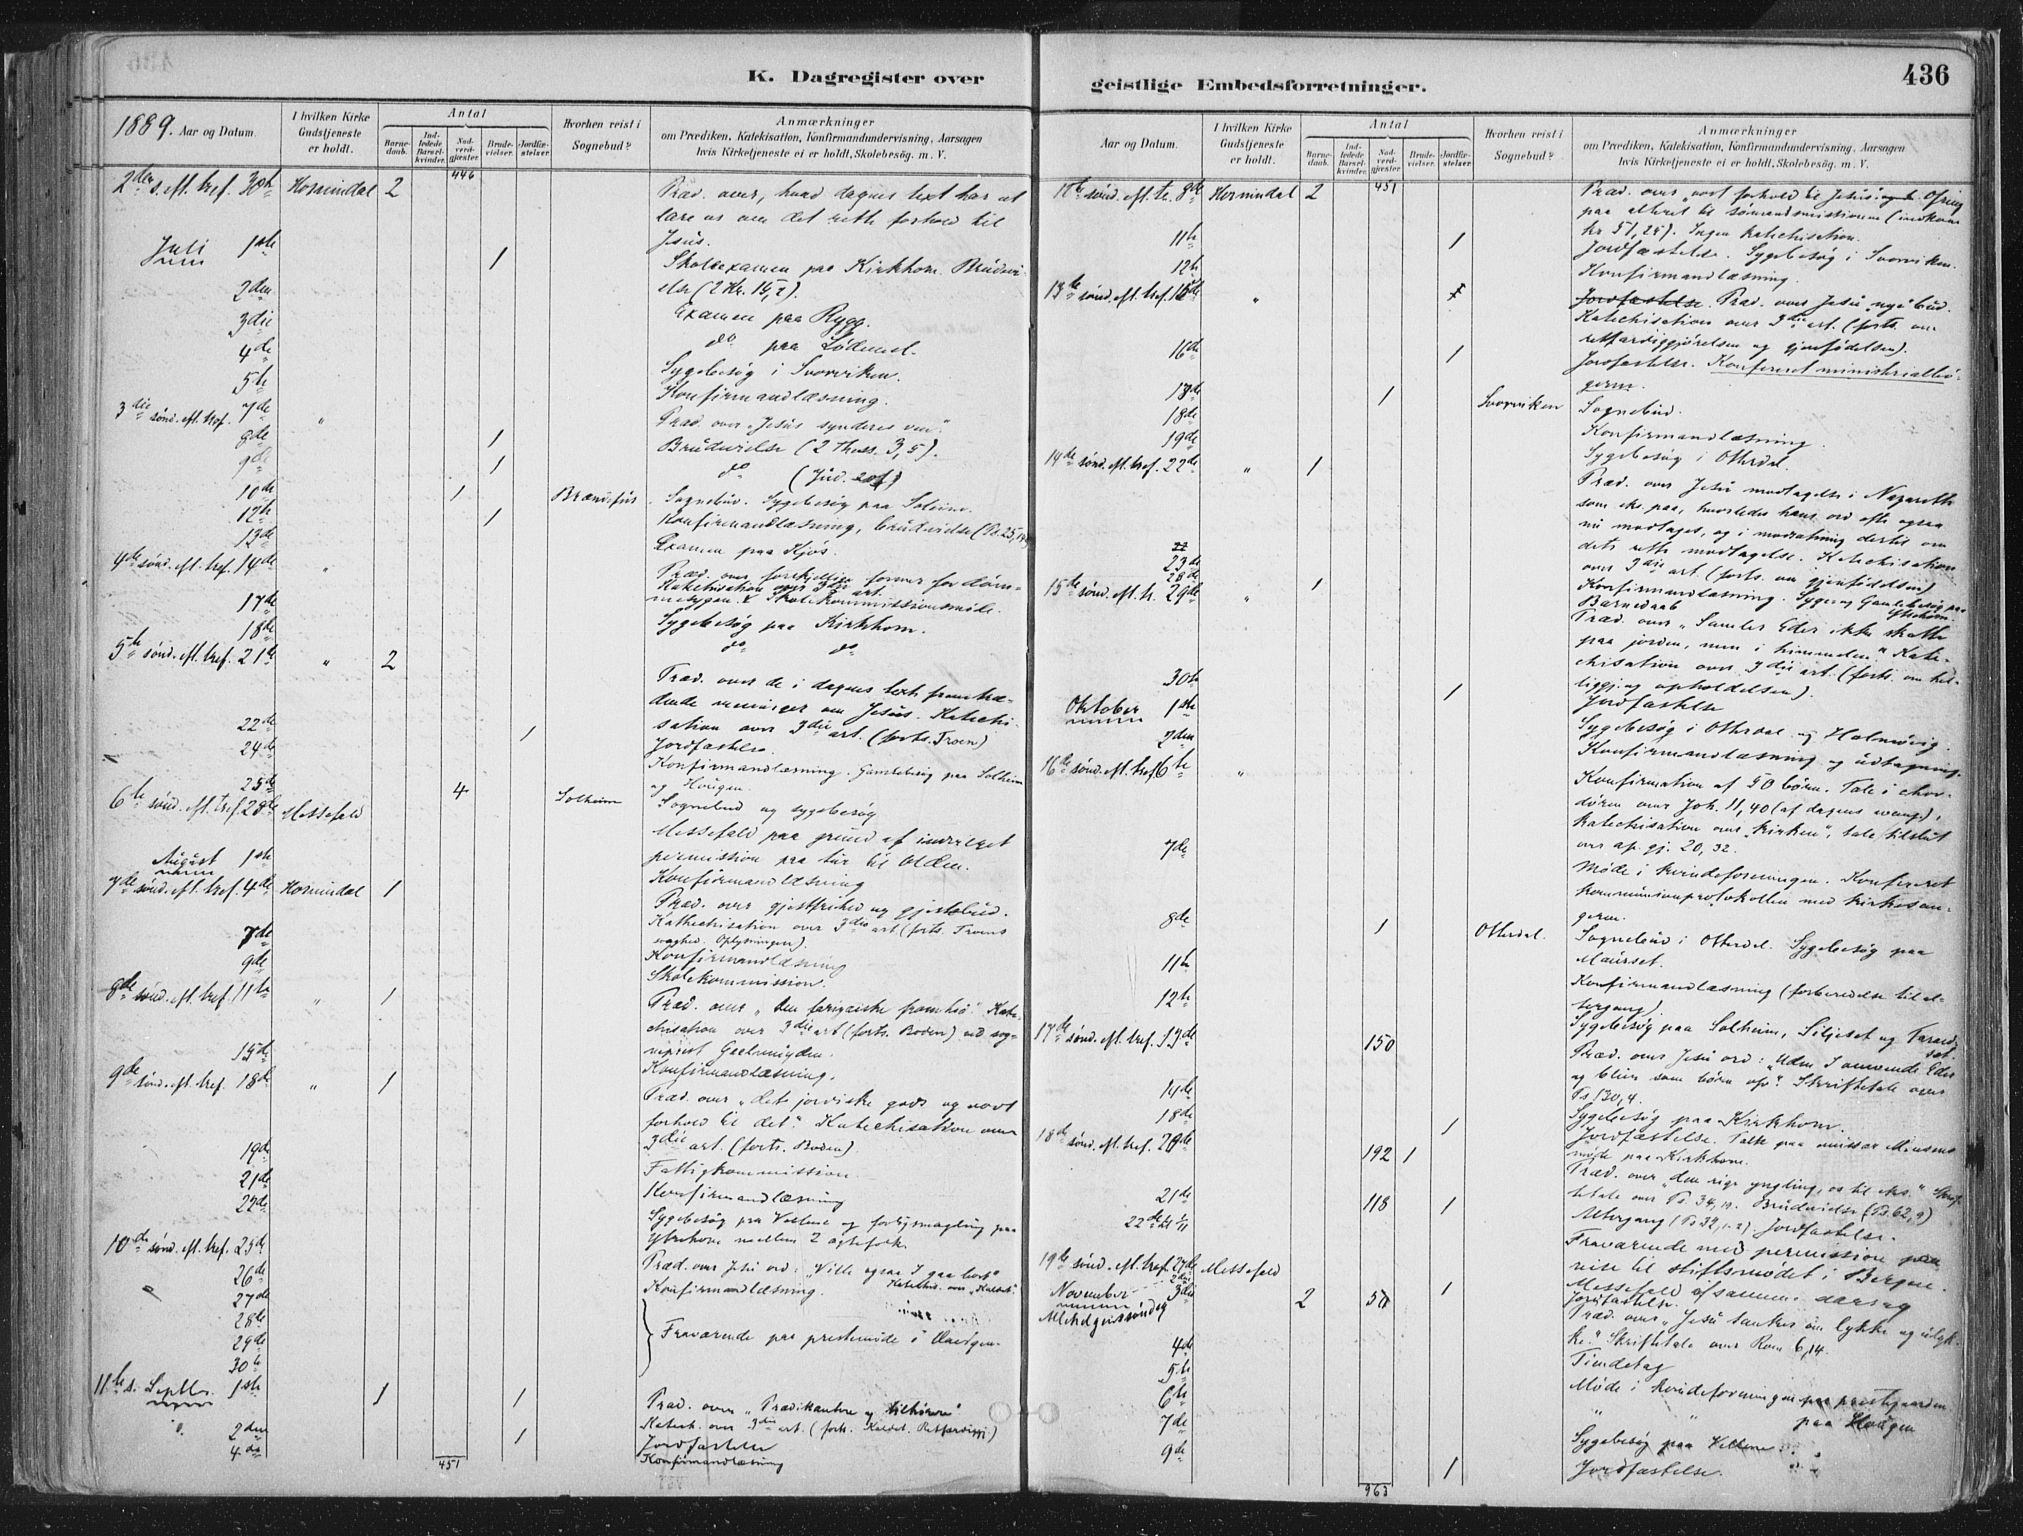 K. Dagregister over
1889. Aar og Datum.
I hvilken Kirke Gudstjeneste er holdt.
Antal
Barnedaab.
Indledede Barselkvinder.
Nadverdgjester.
Brudevielser.
Jordfæstelser.
Hvorhen reist i Sognebud?
Anmærkninger
om Prædiken, Katekisation, Konfirmandundervisning, Aarsagen
hvis Kirketjeneste ei er holdt, Skolebesøg. m. V.
446
2den s. eft. tref. 30te Hornindal 2 Præd. over, hvad dagens text har at
lære os om det rette forhold til
Jesus.
Juli 1ste 1 Skoleexamen paa Kirkhorn. Brudevi-
else (2 Kr. 15,2).
2den Examen paa Rygg.
3die do paa Lødemel.
4de Sygebesøg i Svorviken.
5te Konfirmandlæsning.
3die sønd. eft. tref. 7de " Præd. over "Jesus synderes ven".
8de 1 Brudevielse (2 Thess. 3,5).
9de 1 do (Jud.
10de 1 Sognebud. Sygebesøg paa
12te 1 Konfirmandlæsning, brudevielse (Ps. 25,
13de Examen paa Kjøs.
4de sønd. eft. tref. 14de " Præd. over forskjellige former for døm-
Katekisation over 3die art.
mesygen. Skolekommissionsmøde.
17de Sygebesøg paa Kirkhorn.
18de do do
5te sønd. eft. tref. 21de " 2 Præd. over de i dagens text fremtræ-
dende meninger om Jesus. Katechi-
sation over 3die art. (forts. Troen)
22de 1 Jordfæstelse.
24de Konfirmandlæsning. Gamlebesøg paa Solheim
og Hougen.
25de 4 Solheim Sognebud og sygebesøg
6te sønd. eft. tref. 28de Messefald Messefald paa grund af indvilget
permission paa tur til Olden.
August 1ste Konfirmandlæsning
7de sønd. eft. tref. 4de Hornindal 1 Præd. over gjestfrihed og gjestebud.
Kathechisation over 3die art (forts. Troens
Oplysningen).
7de Konfirmandlæsning
9de Skolekommission.
8de sønd. eft. tref. 11te " 1 Præd. over "den farisæiske fromhed" Kate-
chisation over 3die art (forts. Boden) ved sog-
neprest
15de Konfirmandlæsning.
9de sønd. eft. tref. 18de " 1 Præd. over "det jordiske gods og vort
forhold til det." Katechisation over
3die art. (forts. Boden)
19de Fattigkommission.
21de Konfirmandlæsning
22de Sygebesøg paa og forligsmægling paa
Ytrehorn mellem 2 ægtefolk.
10de sønd. eft. tref. 25de Præd. over Jesu ord: "Ville ogsaa I gaa bort"
26de Konfirmandlæsning. Katechis. over "Kaldet".
27de
28de
29de Fraværende paa prestemøde i
30te
11te s. Septbr. 1ste 1 1 Præd. over "Prædikanten og tilhørere"
Katech. over 3die art. (forts. Kaldet. Retfærdiggj.)
2den 1 Jordfæstelse
4de Konfirmandlæsning
451
geistlige Embedsforretninger.
436
Aar og Datum.
I hvilken Kirke Gudstjeneste er holdt.
Antal
Barnedaab.
Indledede Barselkvinder.
Nadverdgjester.
Brudevielser.
Jordfæstelser.
Hvorhen reist i Sognebud?
Anmærkninger
om Prædiken, Katekisation, Konfirmandundervisning, Aarsagen
hvis Kirketjeneste ei er holdt, Skolebesøg. m. V.
451
sønd. eft. tr. 8de Hornindal 2 Præd. over "vort forhold til Jesus. Ofring
paa alteret til sømandsmissionen (indkom
kr 51,25). Ingen katechisation.
11te 1 Jordfæstelse. Sygebesøg i Svorviken.
12te Konfirmandlæsning.
13de sønd. eft. tref. 15de " Jordfæstelse. Præd. over Jesu nye bud.
Katechisation over 3die art. (forts. om
retfærdiggjørelsen og gjenfødelsen).
16de 1 Jordfæstelse. Konfereret ministerialbø-
gerne.
17de 1 Svorviken Sognebud.
18de Konfirmandlæsning.
19de Sygebesøg i Otterdal.
14de sønd. eft. tref. 22de " 1 Præd. over Jesu modtagelse i Nazareth
som eks. paa, hvorledes hans ord ofte ogsaa
nu modtages, og i modsætning dertil om
dets rette modtagelse. Katechisation
over 3die art. (forts. om gjenfødelsen)
23de Konfirmandlæsning. Syge og Gamlebesøg paa
Ytrehorn.
28de Barnedaab
15de sønd. eft. tr. 29de " 1 Præd. over "Samler Eder ikke skatte
paa jorden, men i himmelen." Kate-
chisation over 3die art. (forts. om hel-
liggj. og opholdelsen).
30te 1 Jordfæstelse
Oktober 1ste Sygebesøg i Otterdal og Holmøvig.
2den Konfirmandlæsning og udtagning.
16de sønd. eft. tref. 6te " Konfirmation af 50 børn. Tale i chor-
døren over Joh. 11,40 (af dagens evang.),
katechisation over "kirken", tale tilslut
over ap. gj. 20,32.
7de Møde i kvindeforeningen. Konfereret
kommunionprotokollen med kirkesan-
geren.
8de 1 Otterdal. Sognebud i Otterdal. Sygebesøg paa
Maurset.
11te Konfirmandlæsning (forberedelse til al-
tergang).
12te Sygebesøg paa Solheim, Siljeset og
17de sønd. eft. tref. 13de 150 Præd. over Jesu ord: "Uden I omvende Eder
og blive som børn osv." Skriftetale over
Ps 130,4.
14de Sygebesøg paa Kirkhorn.
18de 1 Jordfæstelse. Talte paa
møde paa Kirkhorn.
18de sønd. eft. tref. 20de 192 1 Præd. over "den rige yngling, os til eks." Skrif-
tetale over Ps. 34, Brudevielse (Ps. 62,9)
21de 118 1 Altergang (Ps 32,1-2). Jordfæstelse.
22de Fraværende med permission paa
reise til stiftsmødet i Bergen.
19de sønd. eft. tref. 27de Messefald Messefald af samme aarsag
November 2den 1 Jordfæstelse.
3die 2 Præd. over "Jesu tanker om lykke og ulyk-
ke." Skriftetale over Rom 6,14.
4de Tiendetag
5te Møde i kvindeforeningen paa prestgaarden
6te " " paa Hougen
7de Sygebesøg paa
9de 1 Jordfæstelse.
963